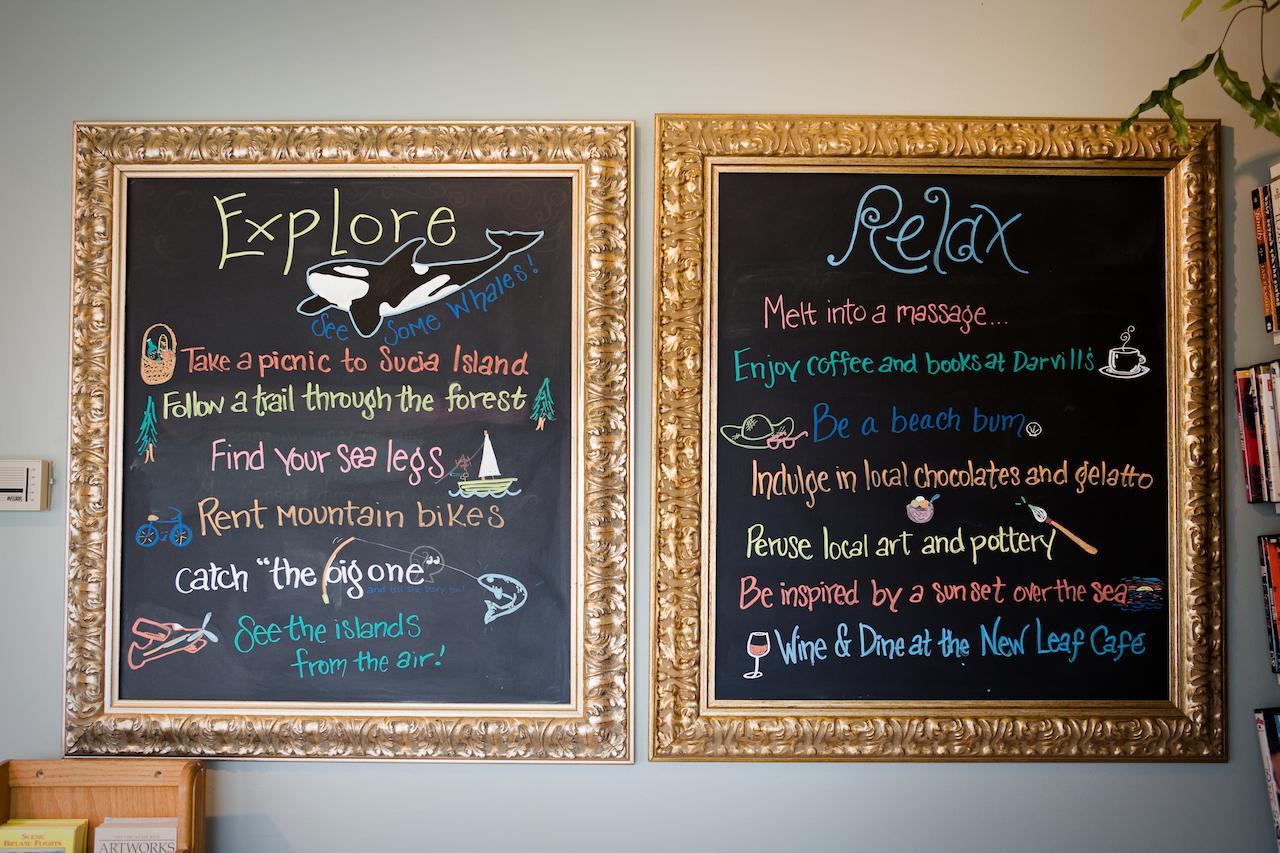 Explore
See Some Whales!
Take a picnic to Sucia Island
Follow a trail through the forest
Find your sea legs
Rent mountain bikes
catch "the big one"
and tell the story too!
See the islands
from the air!
Relax
Melt into a massage...
Enjoy coffee and books at Darvill's
Be a beach bum
Indulge in local chocolates and gelatto
Peruse local art and pottery
Be inspired by a sunset over the sea
Wine & Dine at the New Leaf Café
SCENIC
BIPLANE FLIGHTS
ARTWORKS